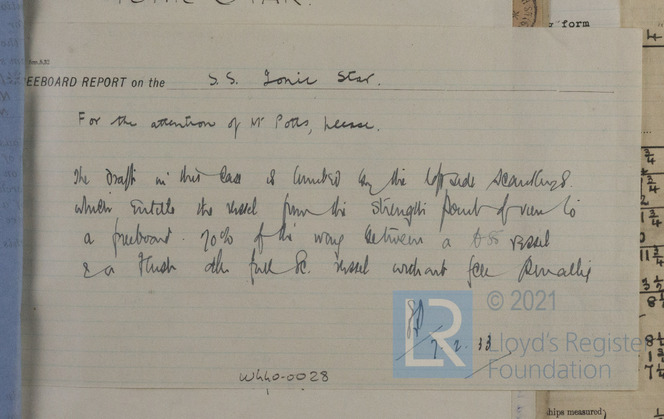 IONIC STAR.
REEBOARD REPORT on the S.S. Ionic Star.
For the attention of Mr Potts, please.
The draft in this case is limited by the topside scantlings
which entitle the vessel from the strength point of view to
a freeboard 70% of the way between a vessel
& a flush dk full sc. vessel without fee Penalty
7.2.33
W440-0028
LR
© 2021
Lloyd's Register
Foundation
form
ships measured